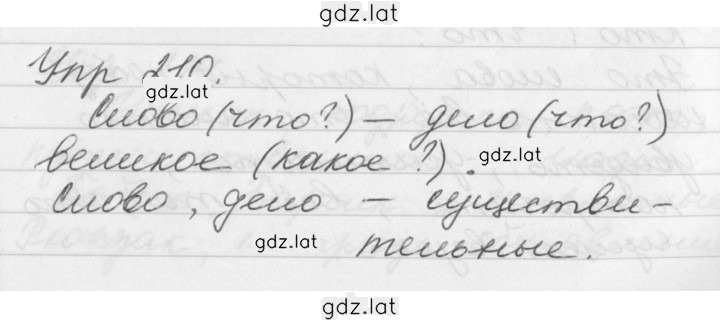 gdz.lat
Упр 210.
gdz.lat
Слово (что?) – дело (что?)
великое (какое?).
gdz.lat
Слово, дело – существи-
gdz.lat
тельные.
gdz.lat